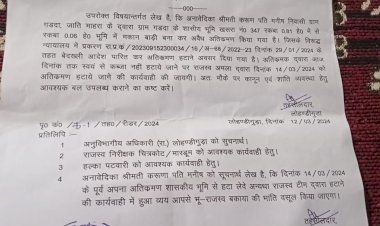 ---00---
उपरोक्त विषयान्तर्गत लेख है, कि अनावेदिका श्रीमती करूण पति मनीष निवासी ग्राम
गडदा, जाति माहरा के द्वारा ग्राम गडदा के शासीय भूमि खसरा नं0 347 रकबा 0.81 हे0 में से
रकबा 0.06 हे0 भूमि में मकान बाड़ी बना कर अवैध अतिक्रमण किया गया है। जिसके विरूद्ध
न्यायालय में प्रकरण रा.प्र.क्र./202309152300034/16/अ-68/2022-23 दिनांक 29/01/2024 के
तहत बेदखली आदेश पारित कर अतिक्रमण हटाने अवसर दिया गया है। अतिक्रमक द्वारा आज
दिनांक तक स्वयं से कब्जा नहीं हटाये जाने पर राजस्व अमला द्वारा दिनांक 14/03/2024 को
अतिक्रमण हटाये जाने की कार्यवाही की जावेगी। अतः मौके पर कानून एवं शांति व्यवस्था हेतु
आवश्यक बल उपलब्ध कराने का कष्ट करें।
तहसीलदार,
लोहण्डीगुड़ा
पृ0 क्र0 /तह0/रीडर/2024
लोहण्डीगुड़ा, दिनांक 12/03/2024
प्रतिलिपि :-
1 अनुविभागीय अधिकारी (रा.) लोहण्डीगुड़ा को सूचनार्थ।
2 राजस्व निरीक्षक चित्रकोट/मारडूम को आवश्यक कार्यवाही हेतु।
3 हल्का पटवारी को आवश्यक कार्यवाही हेतु।
4 अनावेदिका श्रीमती करूणा पति मनीष को सूचनार्थ लेख है, कि दिनांक 14/03/2024
के पूर्व अपना अतिक्रमण शासकीय भूमि से हटा लेवे अन्यथा राजस्व टीम द्वारा हटाने
की कार्यवाही में हुआ व्यय आपसे भू-राजस्व बकाया की भांति वसूल किया जाएगा।
तहसीलदार,